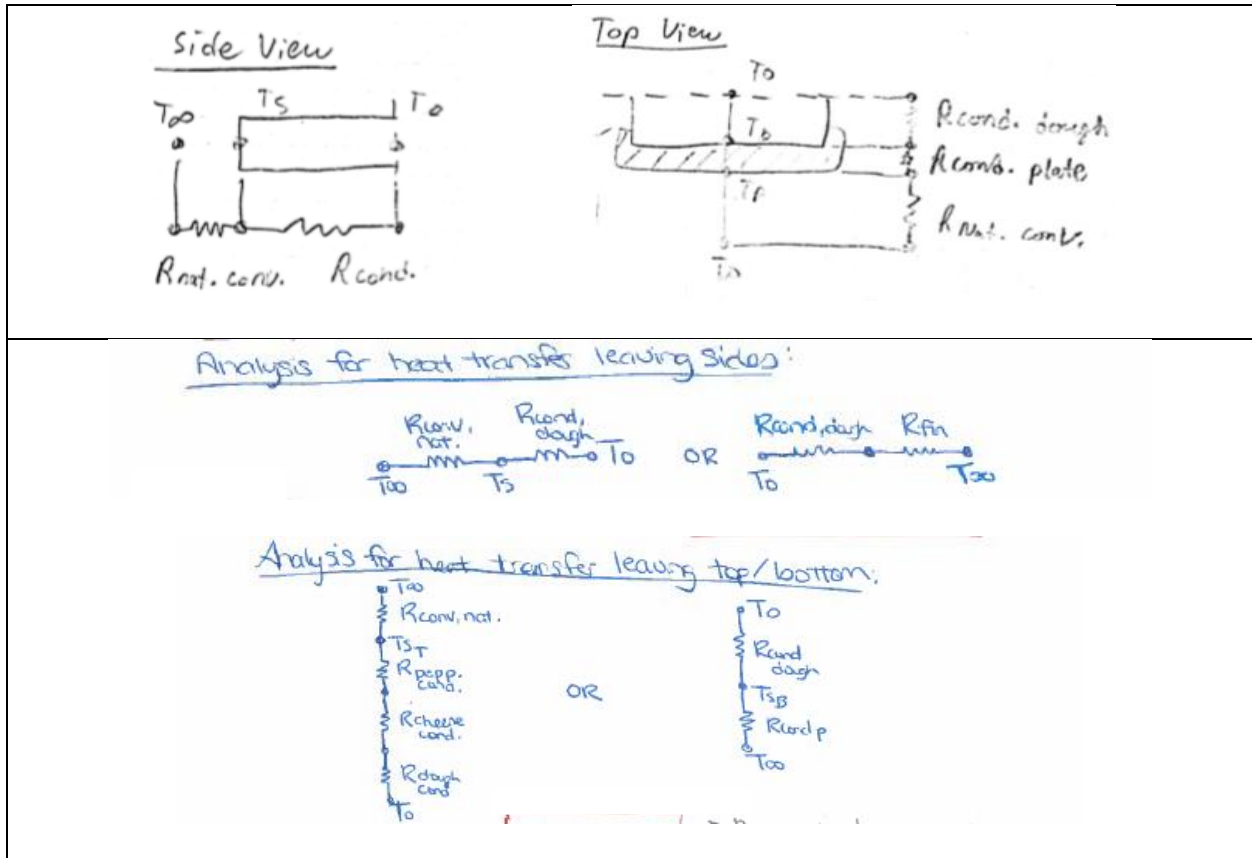 Side View
T∞ Ts To
Rnat. conv. Rcond.
Top View
To
Tb
Tp
Rcond. dough
Rcond. plate
R Nat. conv.
Analysis for heat transfer leaving sides:
Rconv, nat. Rcond, dough
T∞ Ts To
OR
Rcond, dough Rfin
To T∞
Analysis for heat transfer leaving top/bottom:
T∞
Rconv, nat.
TsT
Rpepp. cond.
Rcheese cond.
Rdough cond
To
OR
To
Rcond dough
TsB
Rcond p
T∞